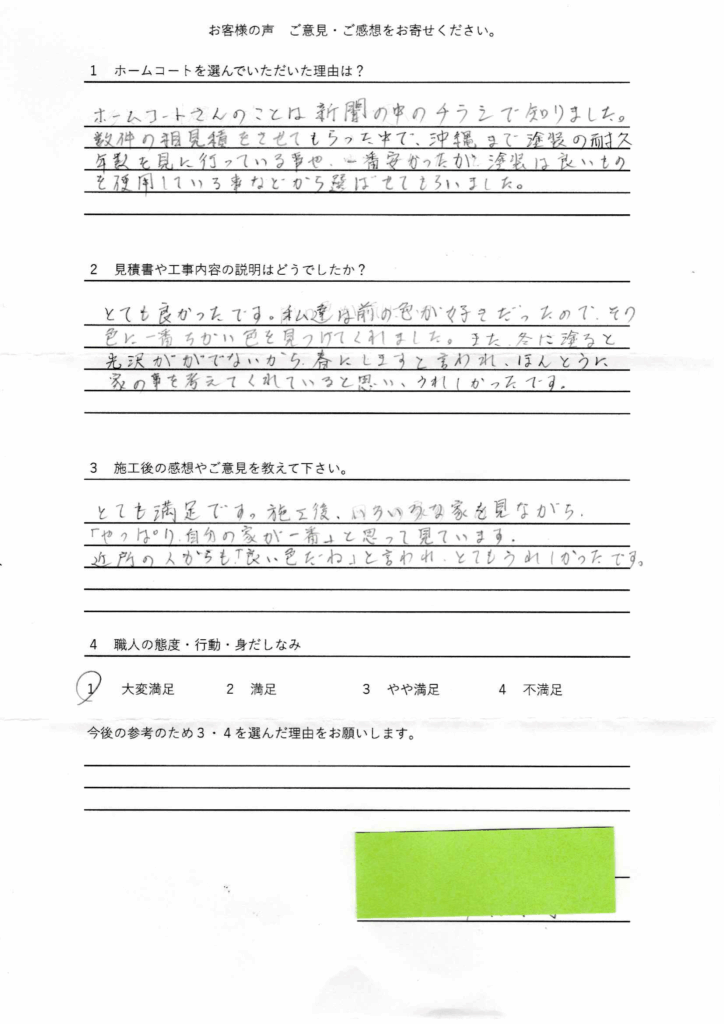 お客様の声　ご意見・ご感想をお寄せください。
1　ホームコートを選んでいただいた理由は？
ホームコートさんのことは新聞の中のチラシで知りました。
数件の相見積をさせてもらった中で、沖縄まで塗装の耐久
年数を見に行っている事や、一番安かったが、塗装は良いもの
を使用している事などから選ばせてもらいました。
2　見積書や工事内容の説明はどうでしたか？
とても良かったです。私達は前の色が好きだったので、その
色に一番ちかい色を見つけてくれました。また、冬に塗ると
光沢がでないから、春にしますと言われ、ほんとうに
家の事を考えてくれていると思い、うれしかったです。
3　施工後の感想やご意見を教えて下さい。
とても満足です。施工後、いろいろな家を見ながら、
「やっぱり、自分の家が一番」と思って見ています。
近所の人からも「良い色だね」と言われ、とてもうれしかったです。
4　職人の態度・行動・身だしなみ
1　大変満足　2　満足　3　やや満足　4　不満足
今後の参考のため3・4を選んだ理由をお願いします。